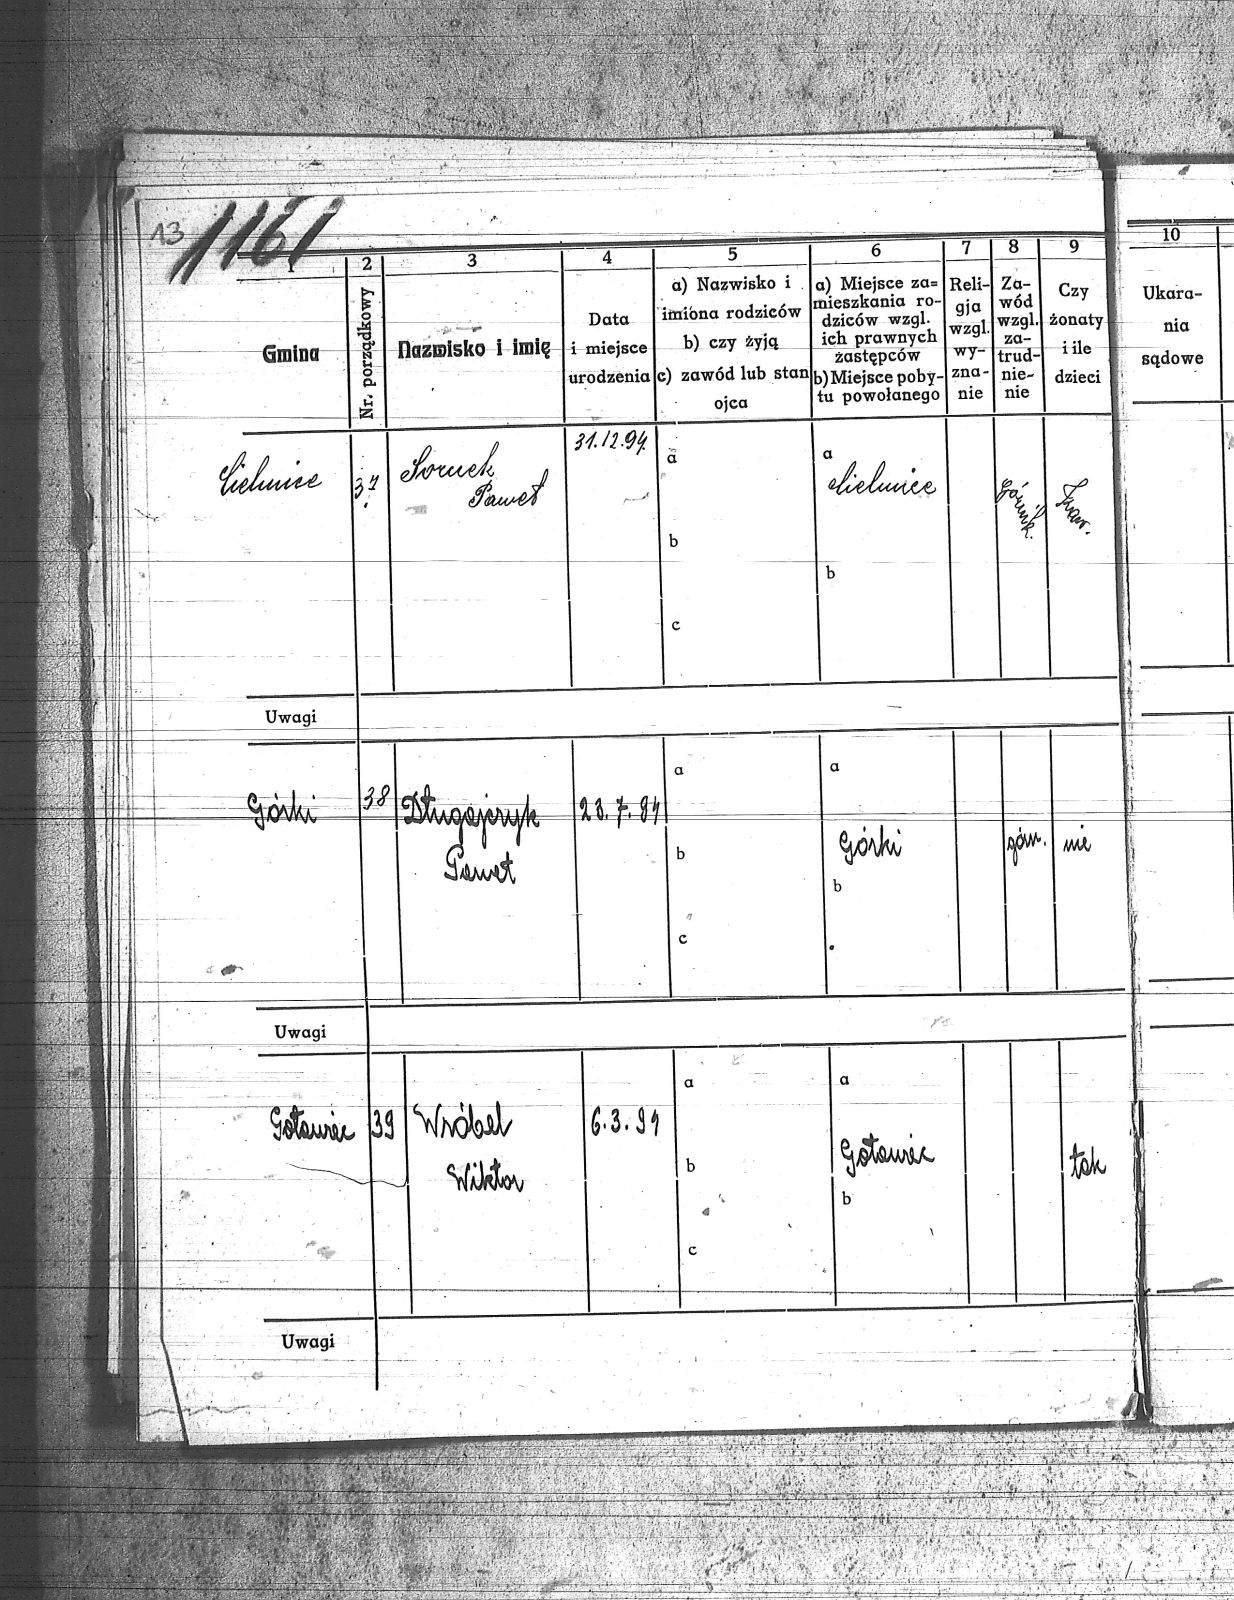 13
1161
1
2
3
4
5
6
7
8
9
10
Gmina
Nr. porządkowy
Nazwisko i imię
Data
i miejsce
urodzenia
a) Nazwisko i
imiona rodziców
b) czy żyją
c) zawód lub stan
ojca
a) Miejsce za=
mieszkania ro-
dziców wzgl.
ich prawnych
żastępców
b) Miejsce poby-
tu powołanego
Reli-
gja
wzgl.
wy-
zna-
nie
Za-
wód
wzgl.
za-
trud-
nie-
nie
Czy
żonaty
i ile
dzieci
Ukara-
nia
sądowe
Cielmice
37.
Paweł
31.12.94.
a
b
c
a
Cielmice
b
górnik.
Uwagi
Górki
38
Długajczyk
Paweł
23.7.84
a
b
c
a
Górki
b
górn.
nie
Uwagi
Gotawiec
39
Wróbel
Wiktor
6.3.94
a
b
c
a
Gotawiec
b
tak
Uwagi